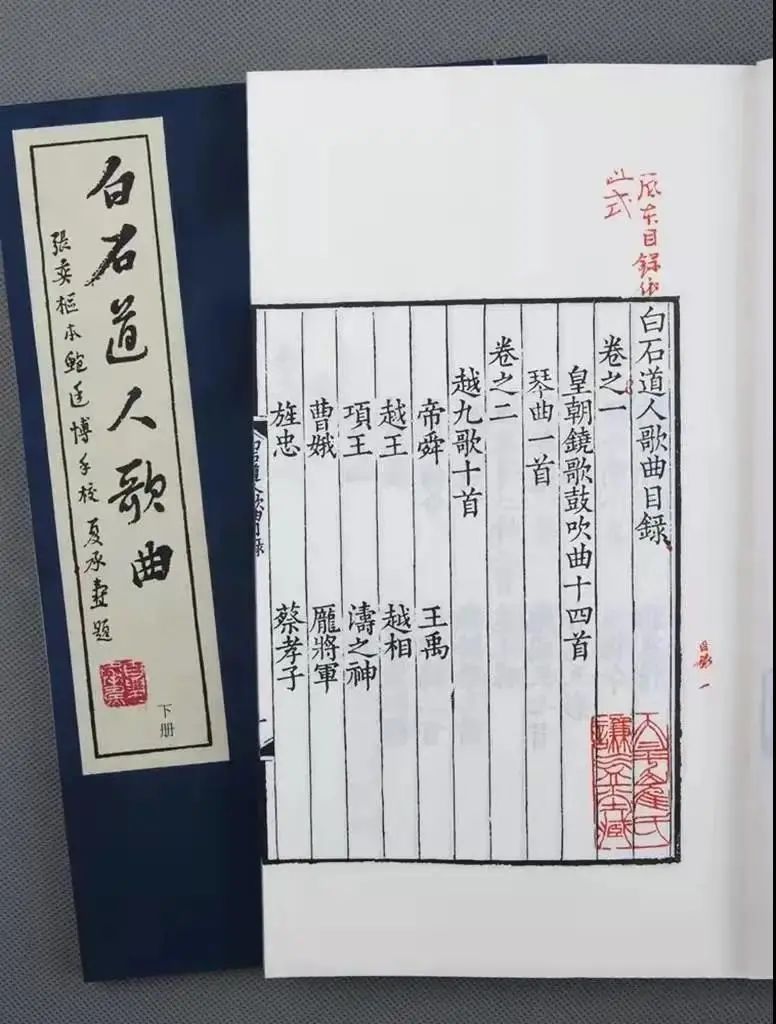 白石道人歌曲
張奕樞本鮑廷博手校 夏承燾題
下册
目録依
此式
白石道人歌曲目録
卷之一
皇朝鐃歌鼓吹曲十四首
琴曲一首
卷之二
越九歌十首
帝舜 王禹
越王 越相
項王 濤之神
曹娥 龐將軍
旌忠 蔡孝子
白石道人歌曲目録
目録 一